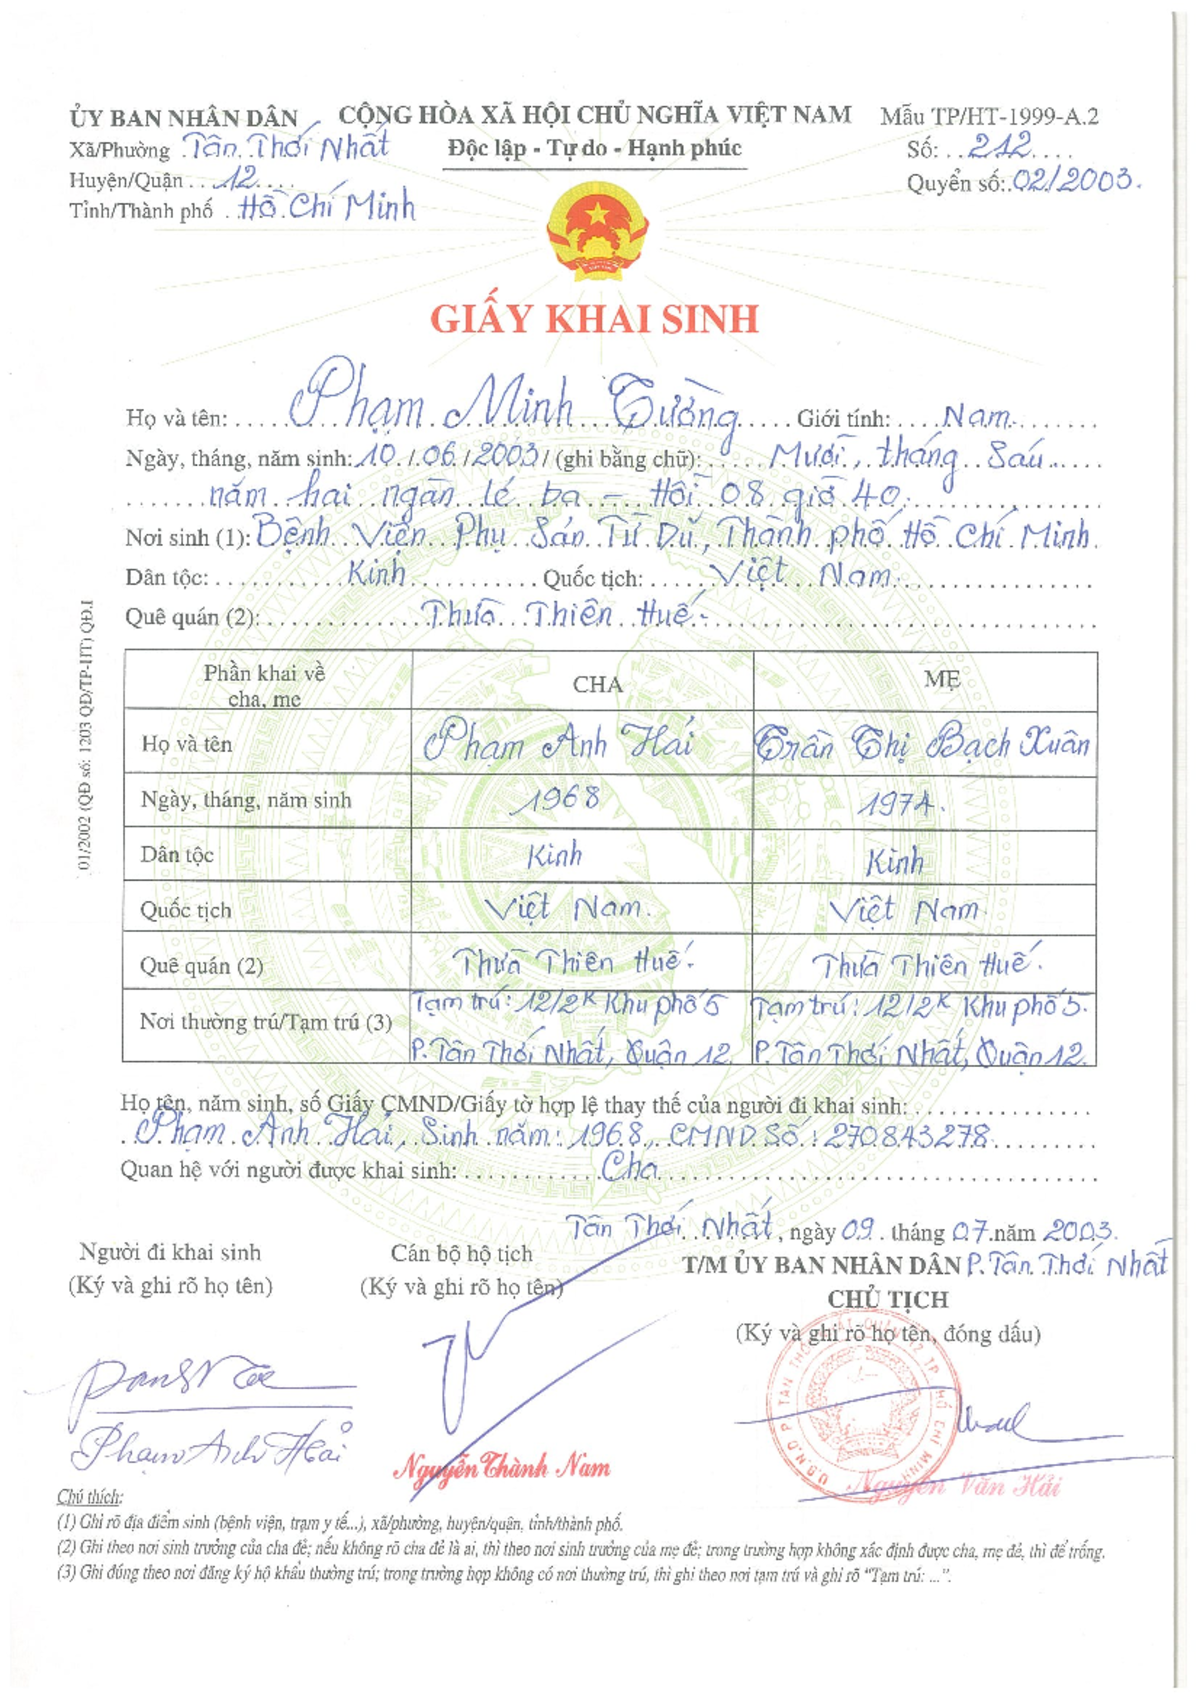 ỦY BAN NHÂN DÂN CỘNG HÒA XÃ HỘI CHỦ NGHĨA VIỆT NAM Mẫu TP/HT-1999-A.2
Xã/Phường Tân Thới Nhất Độc lập - Tự do - Hạnh phúc Số: 212
Huyện/Quận 12 Quyển số: 02/2003.
Tỉnh/Thành phố Hồ Chí Minh
GIẤY KHAI SINH
Họ và tên: Phạm Minh Tường Giới tính: Nam.
Ngày, tháng, năm sinh: 10 / 06 / 2003 / (ghi bằng chữ): Mười, tháng Sáu
năm hai ngàn lẻ ba - Hồi 08 giờ 40.
Nơi sinh (1): Bệnh Viện Phụ Sản Từ Dũ, Thành phố Hồ Chí Minh.
Dân tộc: Kinh Quốc tịch: Việt Nam.
Quê quán (2): Thừa Thiên Huế.
Phần khai về cha, mẹ CHA MẸ
Họ và tên Phạm Anh Hải Trần Thị Bạch Xuân
Ngày, tháng, năm sinh 1968 1974.
Dân tộc Kinh Kinh
Quốc tịch Việt Nam. Việt Nam.
Quê quán (2) Thừa Thiên Huế. Thừa Thiên Huế.
Nơi thường trú/Tạm trú (3) Tạm trú: 12/2K Khu phố 5 P. Tân Thới Nhất, Quận 12. Tạm trú: 12/2K Khu phố 5. P. Tân Thới Nhất, Quận 12.
Họ tên, năm sinh, số Giấy CMND/Giấy tờ hợp lệ thay thế của người đi khai sinh:
Phạm Anh Hải, Sinh năm: 1968, CMND Số: 270843278
Quan hệ với người được khai sinh: Cha
Tân Thới Nhất, ngày 09 tháng 07 năm 2003.
Người đi khai sinh Cán bộ hộ tịch T/M ỦY BAN NHÂN DÂN P. Tân Thới Nhất
(Ký và ghi rõ họ tên) (Ký và ghi rõ họ tên) CHỦ TỊCH
(Ký và ghi rõ họ tên, đóng dấu)
U.B.N.D P TÂN THỚI NHẤT QUẬN 12 TP. HỒ CHÍ MINH
Phạm Anh Hải
Nguyễn Thành Nam Nguyễn Văn Hải
Chú thích:
(1) Ghi rõ địa điểm sinh (bệnh viện, trạm y tế...), xã/phường, huyện/quận, tỉnh/thành phố.
(2) Ghi theo nơi sinh trưởng của cha đẻ; nếu không rõ cha đẻ là ai, thì theo nơi sinh trưởng của mẹ đẻ; trong trường hợp không xác định được cha, mẹ đẻ, thì để trống.
(3) Ghi đúng theo nơi đăng ký hộ khẩu thường trú; trong trường hợp không có nơi thường trú, thì ghi theo nơi tạm trú và ghi rõ "Tạm trú: ...".
01/2002 (QĐ số: 1203 QĐ/TP-HT) QĐ.I